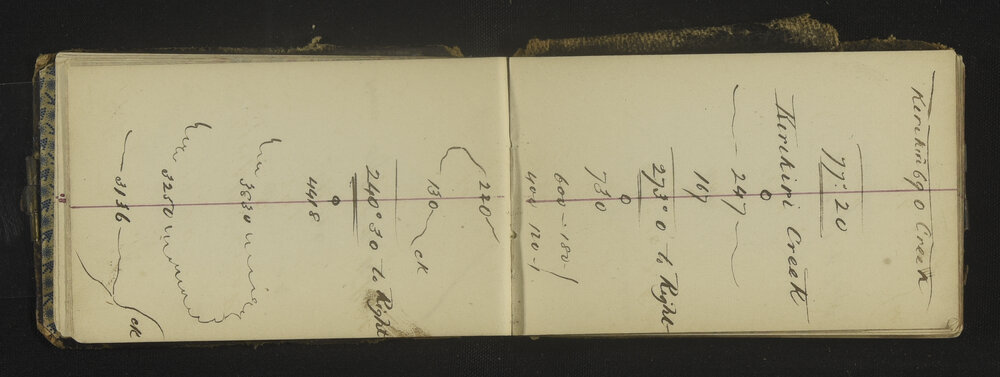 Kirikiri 69 0 Creek
77° 20
Kirikiri Creek
247
167
273° 0 to Right
730
600 - 180
404 120
220
130 ck
240° 30 to Right
4418
3830
3250
3136 ck